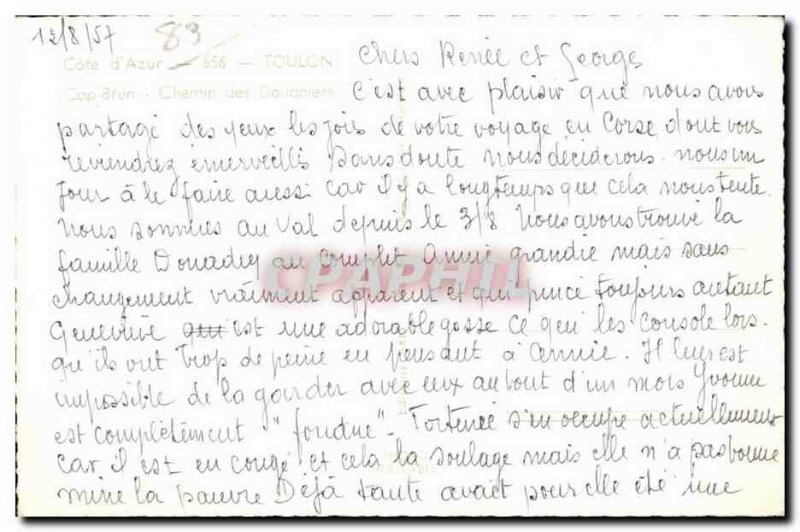 12/8/57 83
Côte d'Azur — 656 — TOULON
Chers Renée et Georges
Cap-Brun - Chemin des Douaniers
C'est avec plaisir que nous avons
partagé des yeux les joies de votre voyage en Corse dont vous
reviendrez émerveillés Sans doute nous déciderons-nous un
jour à le faire aussi car il y a longtemps que cela nous tente.
Nous sommes au Val depuis le 3/8 Nous avons trouvé la
famille Donadey au complet Annie grandie mais sans
changement vraiment apparent et qui pince toujours autant
Geneviève qui est une adorable gosse ce qui les console lors-
qu'ils ont trop de peine en pensant à Annie. Il leur est
impossible de la garder avec eux au bout d'un mois Yvonne
est complètement "fondue". s'en occupe actuellement
car il est en congé et cela la soulage mais elle n'a pas bonne
mine la pauvre Déjà tante avait pour elle été une
CPAPHIL